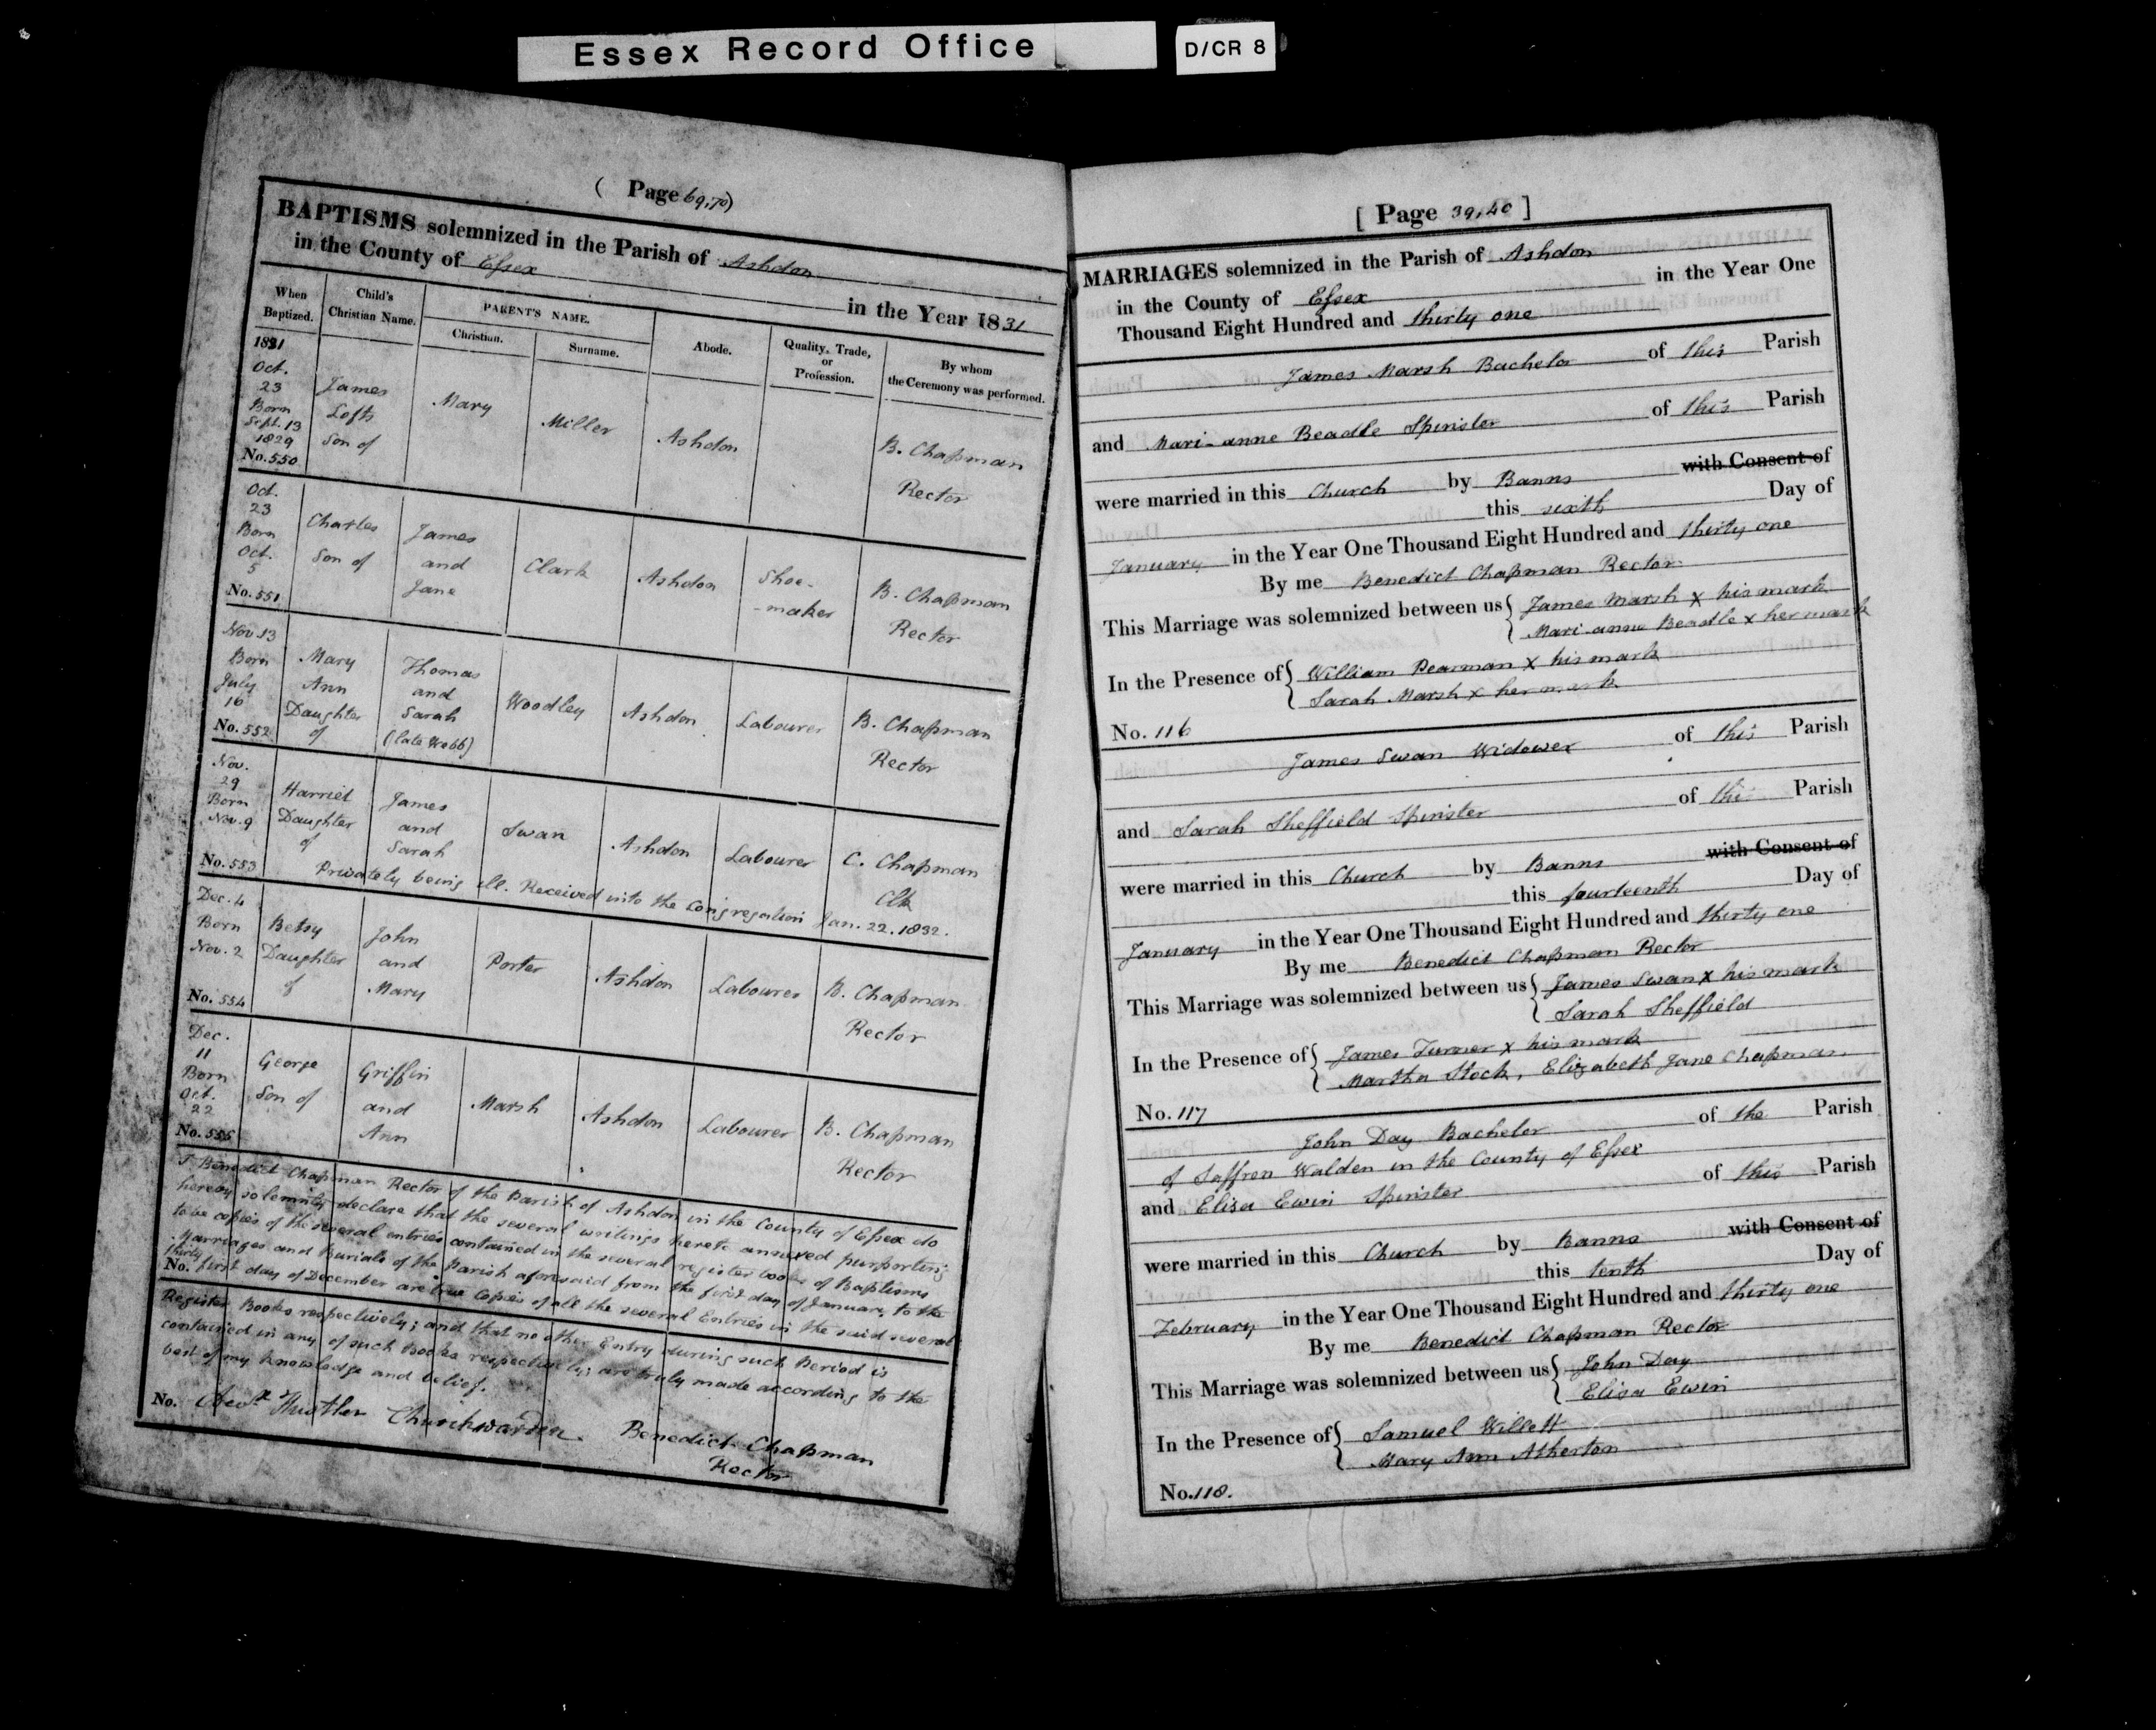 Essex Record Office
D/CR 8
( Page 69,70)
BAPTISMS solemnized in the Parish of Ashdon
in the County of Essex in the Year 1831
When Baptized. Child's Christian Name. PARENT'S NAME. Christian. Surname. Abode. Quality, Trade, or Profession. By whom the Ceremony was performed.
1831
Oct. 23 Born Sept. 13 1829 No. 550 James Lofts Son of Mary Miller Ashdon B. Chapman Rector
Oct. 23 Born Oct. 5 No. 551 Charles Son of James and Jane Clark Ashdon Shoe-maker B. Chapman Rector
Nov 13 Born July 16 No. 552 Mary Ann Daughter of Thomas and Sarah (late Webb) Woodley Ashdon Labourer B. Chapman Rector
Nov. 29 Born Nov. 9 No. 553 Harriet Daughter of James and Sarah Swan Ashdon Labourer C. Chapman Clk
Privately being ill. Received into the Congregation Jan. 22. 1832.
Dec. 4 Born Nov. 2 No. 554 Betsy Daughter of John and Mary Porter Ashdon Labourer B. Chapman Rector
Dec. 11 Born Oct. 22 No. 555 George Son of Griffin and Ann Marsh Ashdon Labourer B. Chapman Rector
I Benedict Chapman Rector of the Parish of Ashdon in the County of Essex do
hereby solemnly declare that the several writings hereto annexed purporting
to be copies of the several entries contained in the several register books of Baptisms
Marriages and Burials of the parish aforesaid from the first day of January to the
thirty
No. first day of December are true Copies of all the several Entries in the said several
Register Books respectively; and that no other Entry during such Period is
contained in any of such Books respectively; are truly made according to the
best of my knowledge and belief.
No. Hustler Churchwarden. Benedict Chapman
Rector
[ Page 39,40 ]
MARRIAGES solemnized in the Parish of Ashdon
in the County of Essex in the Year One
Thousand Eight Hundred and thirty one
James Marsh Bachelor of this Parish
and Mari-anne Beadle Spinster of this Parish
were married in this Church by Banns with Consent of
this sixth Day of
January in the Year One Thousand Eight Hundred and thirty one
By me Benedict Chapman Rector
This Marriage was solemnized between us { James Marsh x his mark
Mari-anne Beadle x her mark
In the Presence of { William Pearman x his mark
Sarah Marsh x her mark
No. 116
James Swan Widower of this Parish
and Sarah Sheffield Spinster of this Parish
were married in this Church by Banns with Consent of
this fourteenth Day of
January in the Year One Thousand Eight Hundred and thirty one
By me Benedict Chapman Rector
This Marriage was solemnized between us { James Swan x his mark
Sarah Sheffield
In the Presence of { James Turner x his mark
Martha Stock, Elizabeth Jane Chapman
No. 117
John Day Bachelor of the Parish
of Saffron Walden in the County of Essex
and Elisa Ewin Spinster of this Parish
were married in this Church by Banns with Consent of
this tenth Day of
February in the Year One Thousand Eight Hundred and thirty one
By me Benedict Chapman Rector
This Marriage was solemnized between us { John Day
Elisa Ewin
In the Presence of { Samuel Willett
Mary Ann Atherton
No. 118.